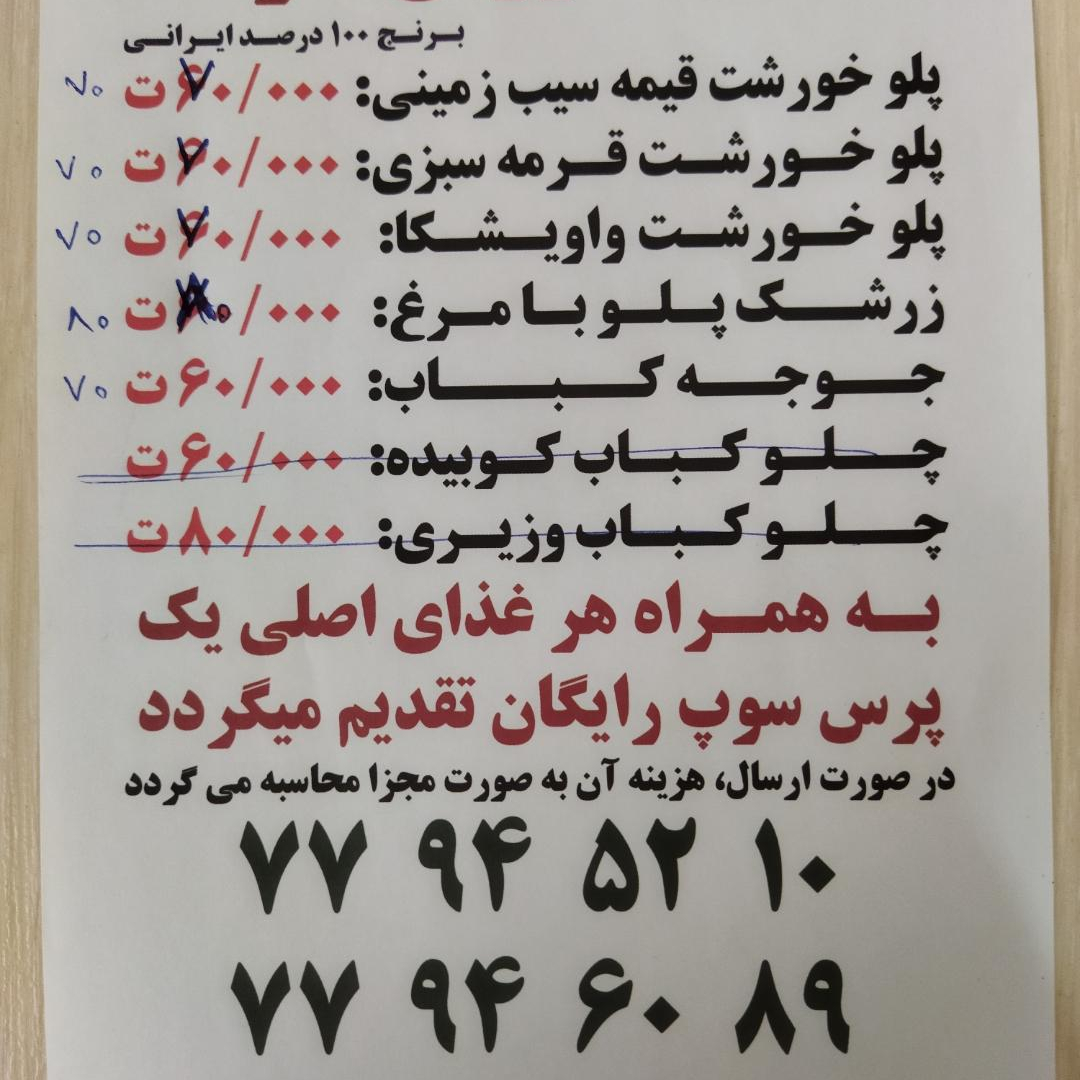 برنج ۱۰۰ درصد ایرانی
پلو خورشت قیمه سیب زمینی: ۶۰/۰۰۰ ت ۷۰
پلو خورشت قرمه سبزی: ۶۰/۰۰۰ ت ۷۰
پلو خورشت واویشکا: ۶۰/۰۰۰ ت ۷۰
زرشک پلو با مرغ: ۶۰/۰۰۰ ت ۸۰
جوجه کباب: ۶۰/۰۰۰ ت ۷۰
چلو کباب کوبیده: ۶۰/۰۰۰ ت
چلو کباب وزیری: ۸۰/۰۰۰ ت
به همراه هر غذای اصلی یک
پرس سوپ رایگان تقدیم میگردد
در صورت ارسال، هزینه آن به صورت مجزا محاسبه می گردد
۷۷ ۹۴ ۵۲ ۱۰
۷۷ ۹۴ ۶۰ ۸۹